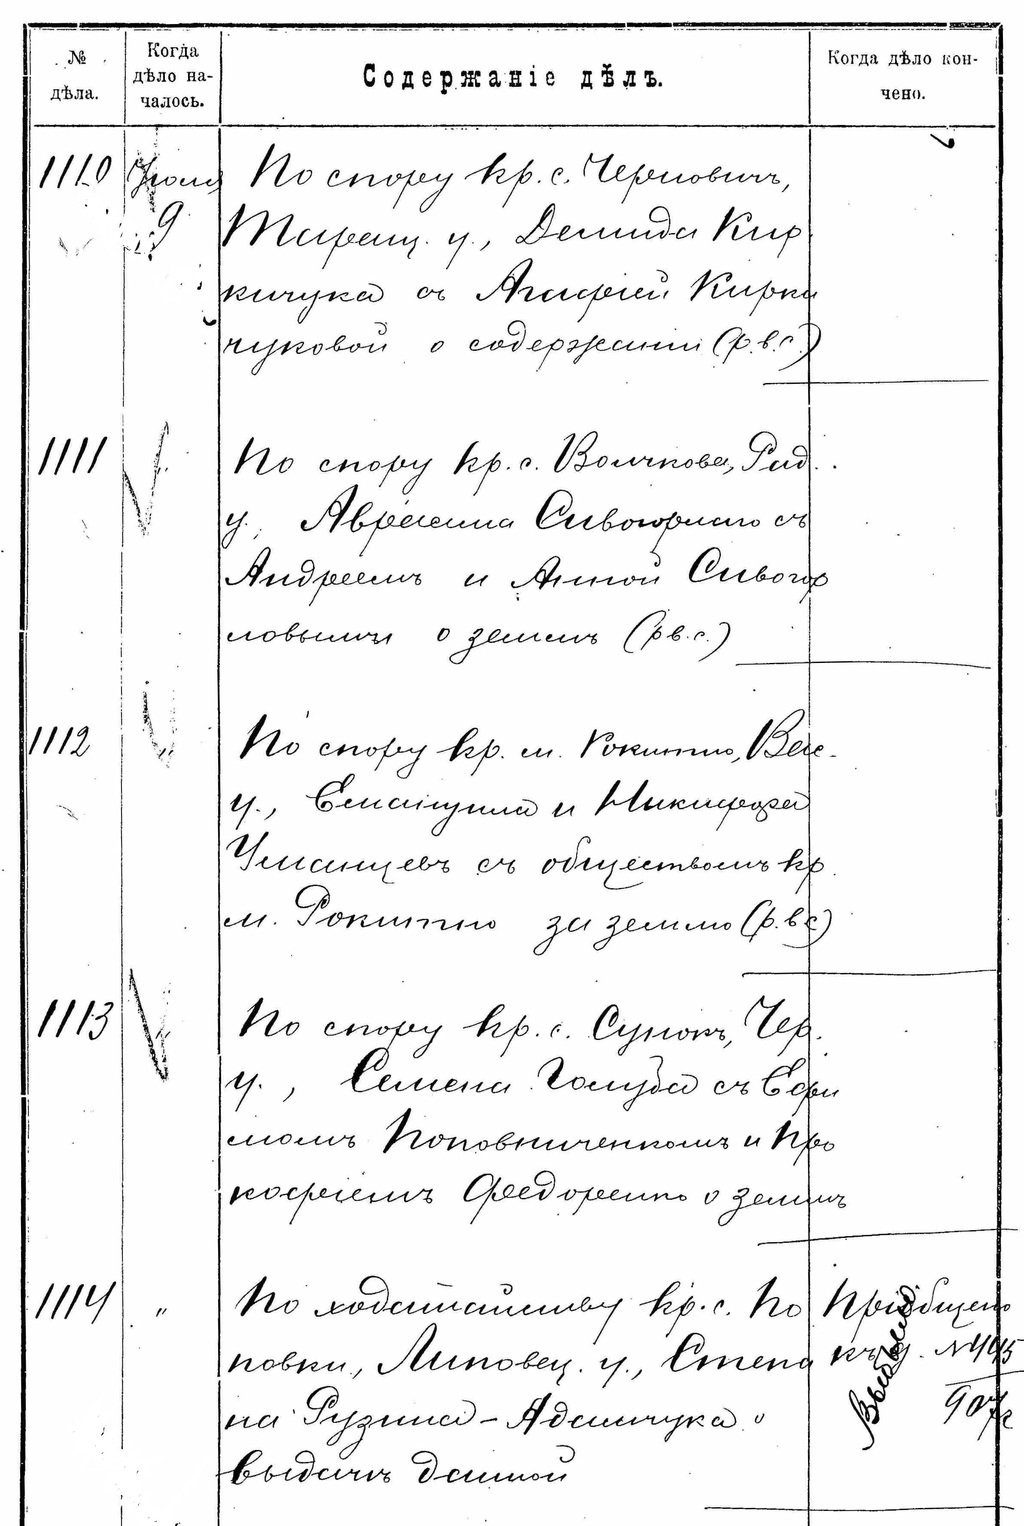 № дѣла.
Когда дѣло на-
чалось.
Содержаніе дѣлъ.
Когда дѣло кон-
чено.
1110 Іюля По спору кр. с. Черповичъ,
9 Таращ. у., Демида Кир
кичука съ Агафіей Кирки
чуковой о содержании (р.в.с.)
1111 По спору кр. с. Волчкова, Рад.
у., Аврама Сивогорлаго съ
Андреемъ и Анной Сивогор
ловыми о землѣ (р.в.с.)
1112 По спору кр. м. Рокитно, Вас.
у., Емануила и Никифора
Уманцевъ съ обществомъ кр.
м. Рокитно за землю (р.в.с)
1113 По спору кр. с. Супокъ, Чер.
у., Семена Голуба съ Ефи
момъ Поповниченкомъ и Про
кофіемъ Федоренко о землѣ
1114 " По ходатайству кр. с. По Пріобщено
повки, Липовец. у., Степа къ д. № 445
на Рузина-Адамчука о 907г
выдачѣ данной
Выбыло